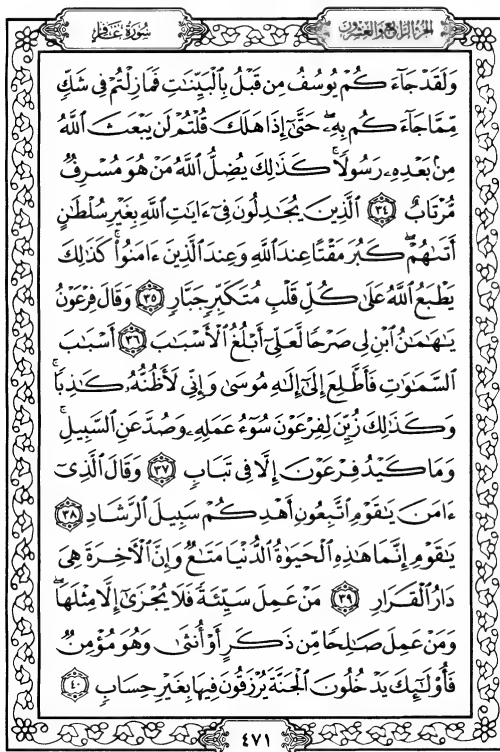 الجزء الرابع والعشرون
سورة غافر
وَلَقَدْ جَآءَكُمْ يُوسُفُ مِن قَبْلُ بِالْبَيِّنَٰتِ فَمَا زِلْتُمْ فِى شَكٍّ
مِّمَّا جَآءَكُم بِهِۦ ۖ حَتَّىٰٓ إِذَا هَلَكَ قُلْتُمْ لَن يَبْعَثَ اللَّهُ
مِنۢ بَعْدِهِۦ رَسُولًا ۚ كَذَٰلِكَ يُضِلُّ اللَّهُ مَنْ هُوَ مُسْرِفٌ
مُّرْتَابٌ ٣٤ الَّذِينَ يُجَٰدِلُونَ فِىٓ ءَايَٰتِ اللَّهِ بِغَيْرِ سُلْطَٰنٍ
أَتَىٰهُمْ ۖ كَبُرَ مَقْتًا عِندَ اللَّهِ وَعِندَ الَّذِينَ ءَامَنُوا۟ ۚ كَذَٰلِكَ
يَطْبَعُ اللَّهُ عَلَىٰ كُلِّ قَلْبِ مُتَكَبِّرٍ جَبَّارٍ ٣٥ وَقَالَ فِرْعَوْنُ
يَٰهَٰمَٰنُ ابْنِ لِى صَرْحًا لَّعَلِّىٓ أَبْلُغُ الْأَسْبَٰبَ ٣٦ أَسْبَٰبَ
السَّمَٰوَٰتِ فَأَطَّلِعَ إِلَىٰٓ إِلَٰهِ مُوسَىٰ وَإِنِّى لَأَظُنُّهُۥ كَٰذِبًا ۚ
وَكَذَٰلِكَ زُيِّنَ لِفِرْعَوْنَ سُوٓءُ عَمَلِهِۦ وَصُدَّ عَنِ السَّبِيلِ ۚ
وَمَا كَيْدُ فِرْعَوْنَ إِلَّا فِى تَبَابٍ ٣٧ وَقَالَ الَّذِىٓ
ءَامَنَ يَٰقَوْمِ اتَّبِعُونِ أَهْدِكُمْ سَبِيلَ الرَّشَادِ ٣٨
يَٰقَوْمِ إِنَّمَا هَٰذِهِ الْحَيَوٰةُ الدُّنْيَا مَتَٰعٌ وَإِنَّ الْءَاخِرَةَ هِىَ
دَارُ الْقَرَارِ ٣٩ مَنْ عَمِلَ سَيِّئَةً فَلَا يُجْزَىٰٓ إِلَّا مِثْلَهَا ۖ
وَمَنْ عَمِلَ صَٰلِحًا مِّن ذَكَرٍ أَوْ أُنثَىٰ وَهُوَ مُؤْمِنٌ
فَأُو۟لَٰٓئِكَ يَدْخُلُونَ الْجَنَّةَ يُرْزَقُونَ فِيهَا بِغَيْرِ حِسَابٍ ٤٠
٤٧١